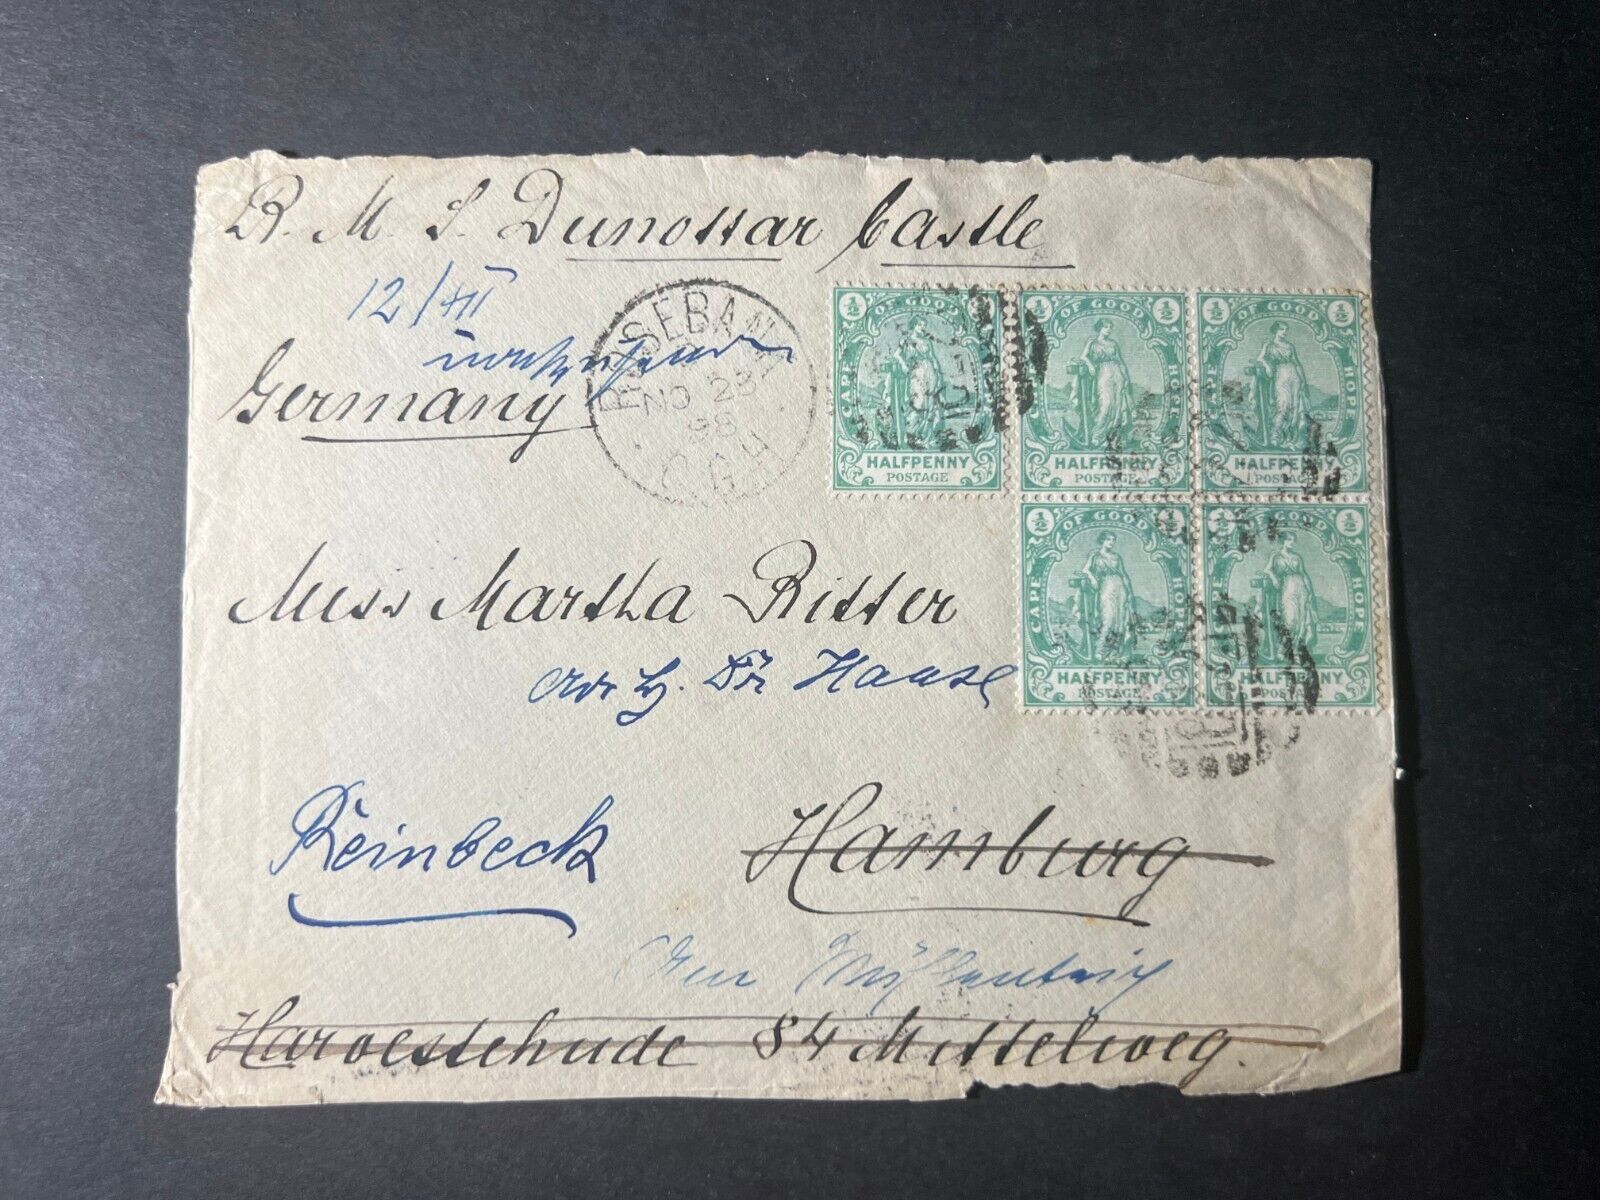 R. M. S. Dunottar Castle
12/XII
Germany
ROSEBANK
NO 23
98
C.G.H
1/2 OF GOOD 1/2
CAPE HOPE
HALFPENNY
POSTAGE
1/2 OF GOOD 1/2
CAPE HOPE
HALFPENNY
POSTAGE
1/2 OF GOOD 1/2
CAPE HOPE
HALFPENNY
POSTAGE
1/2 OF GOOD 1/2
CAPE HOPE
HALFPENNY
POSTAGE
1/2 OF GOOD 1/2
CAPE HOPE
HALFPENNY
POSTAGE
Miss Martha Ritter
Dr Haase
Reinbeck
Hamburg
Harvestehude 84 Mittelweg.